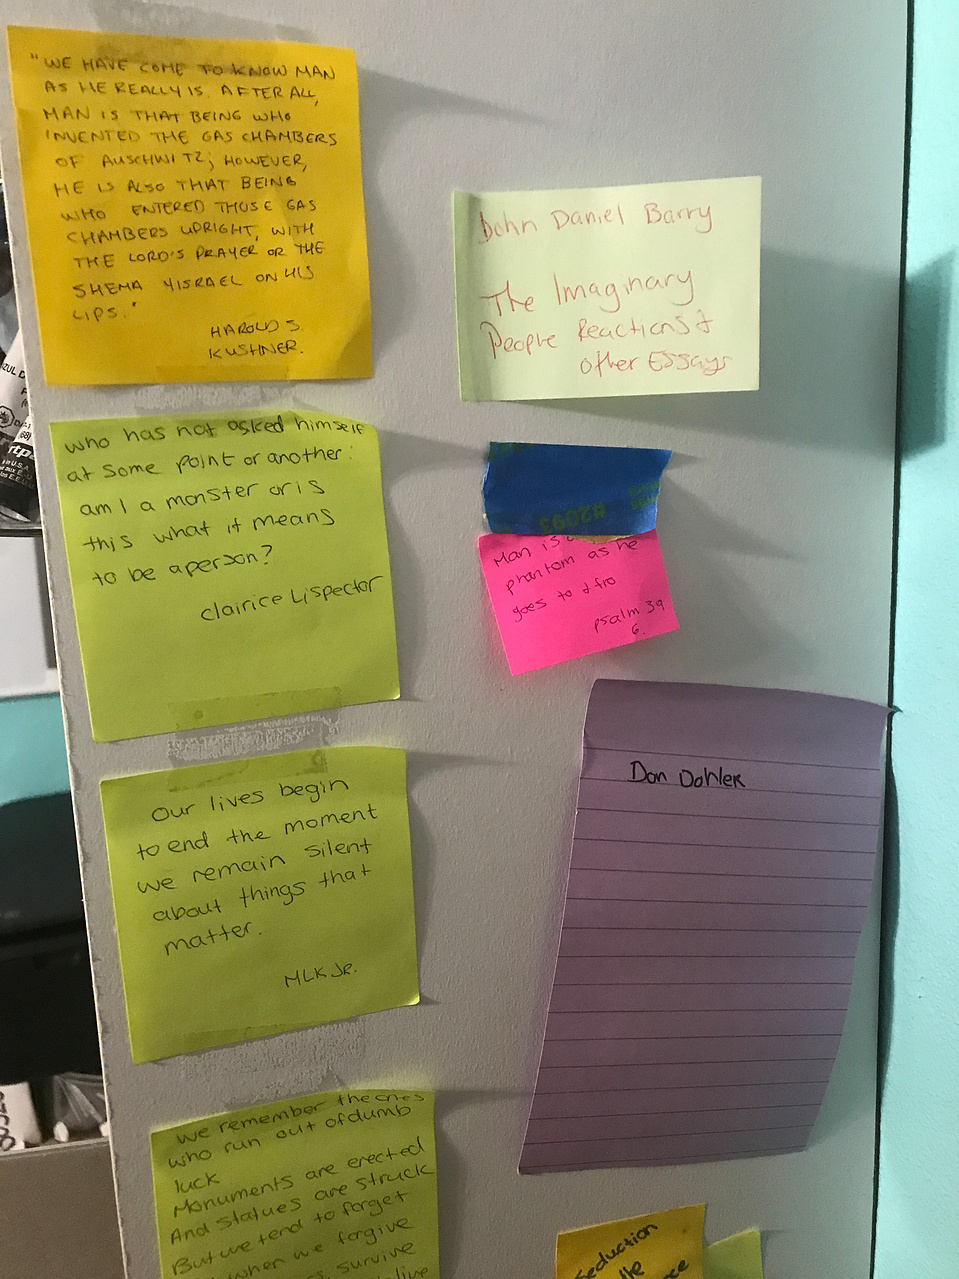 "WE HAVE COME TO KNOW MAN
AS HE REALLY IS. AFTER ALL,
MAN IS THAT BEING WHO
INVENTED THE GAS CHAMBERS
OF AUSCHWITZ; HOWEVER,
HE IS ALSO THAT BEING
WHO ENTERED THOSE GAS
CHAMBERS UPRIGHT, WITH
THE LORD'S PRAYER OR THE
SHEMA YISRAEL ON HIS
LIPS."
HAROLD S.
KUSHNER.
who has not asked himself
at some point or another:
am I a monster or is
this what it means
to be a person?
Clairice Lispector
Our lives begin
to end the moment
we remain silent
about things that
matter.
MLK JR.
we remember the ones
who run out of dumb
luck
Monuments are erected
And statues are struck
But we tend to forget
when we forgive
survive
live
John Daniel Barry
The Imaginary
People Reactions &
other Essays
#2093
Man is
phantom as he
goes to & fro
psalm 39
6.
Don Dohler
Seduction